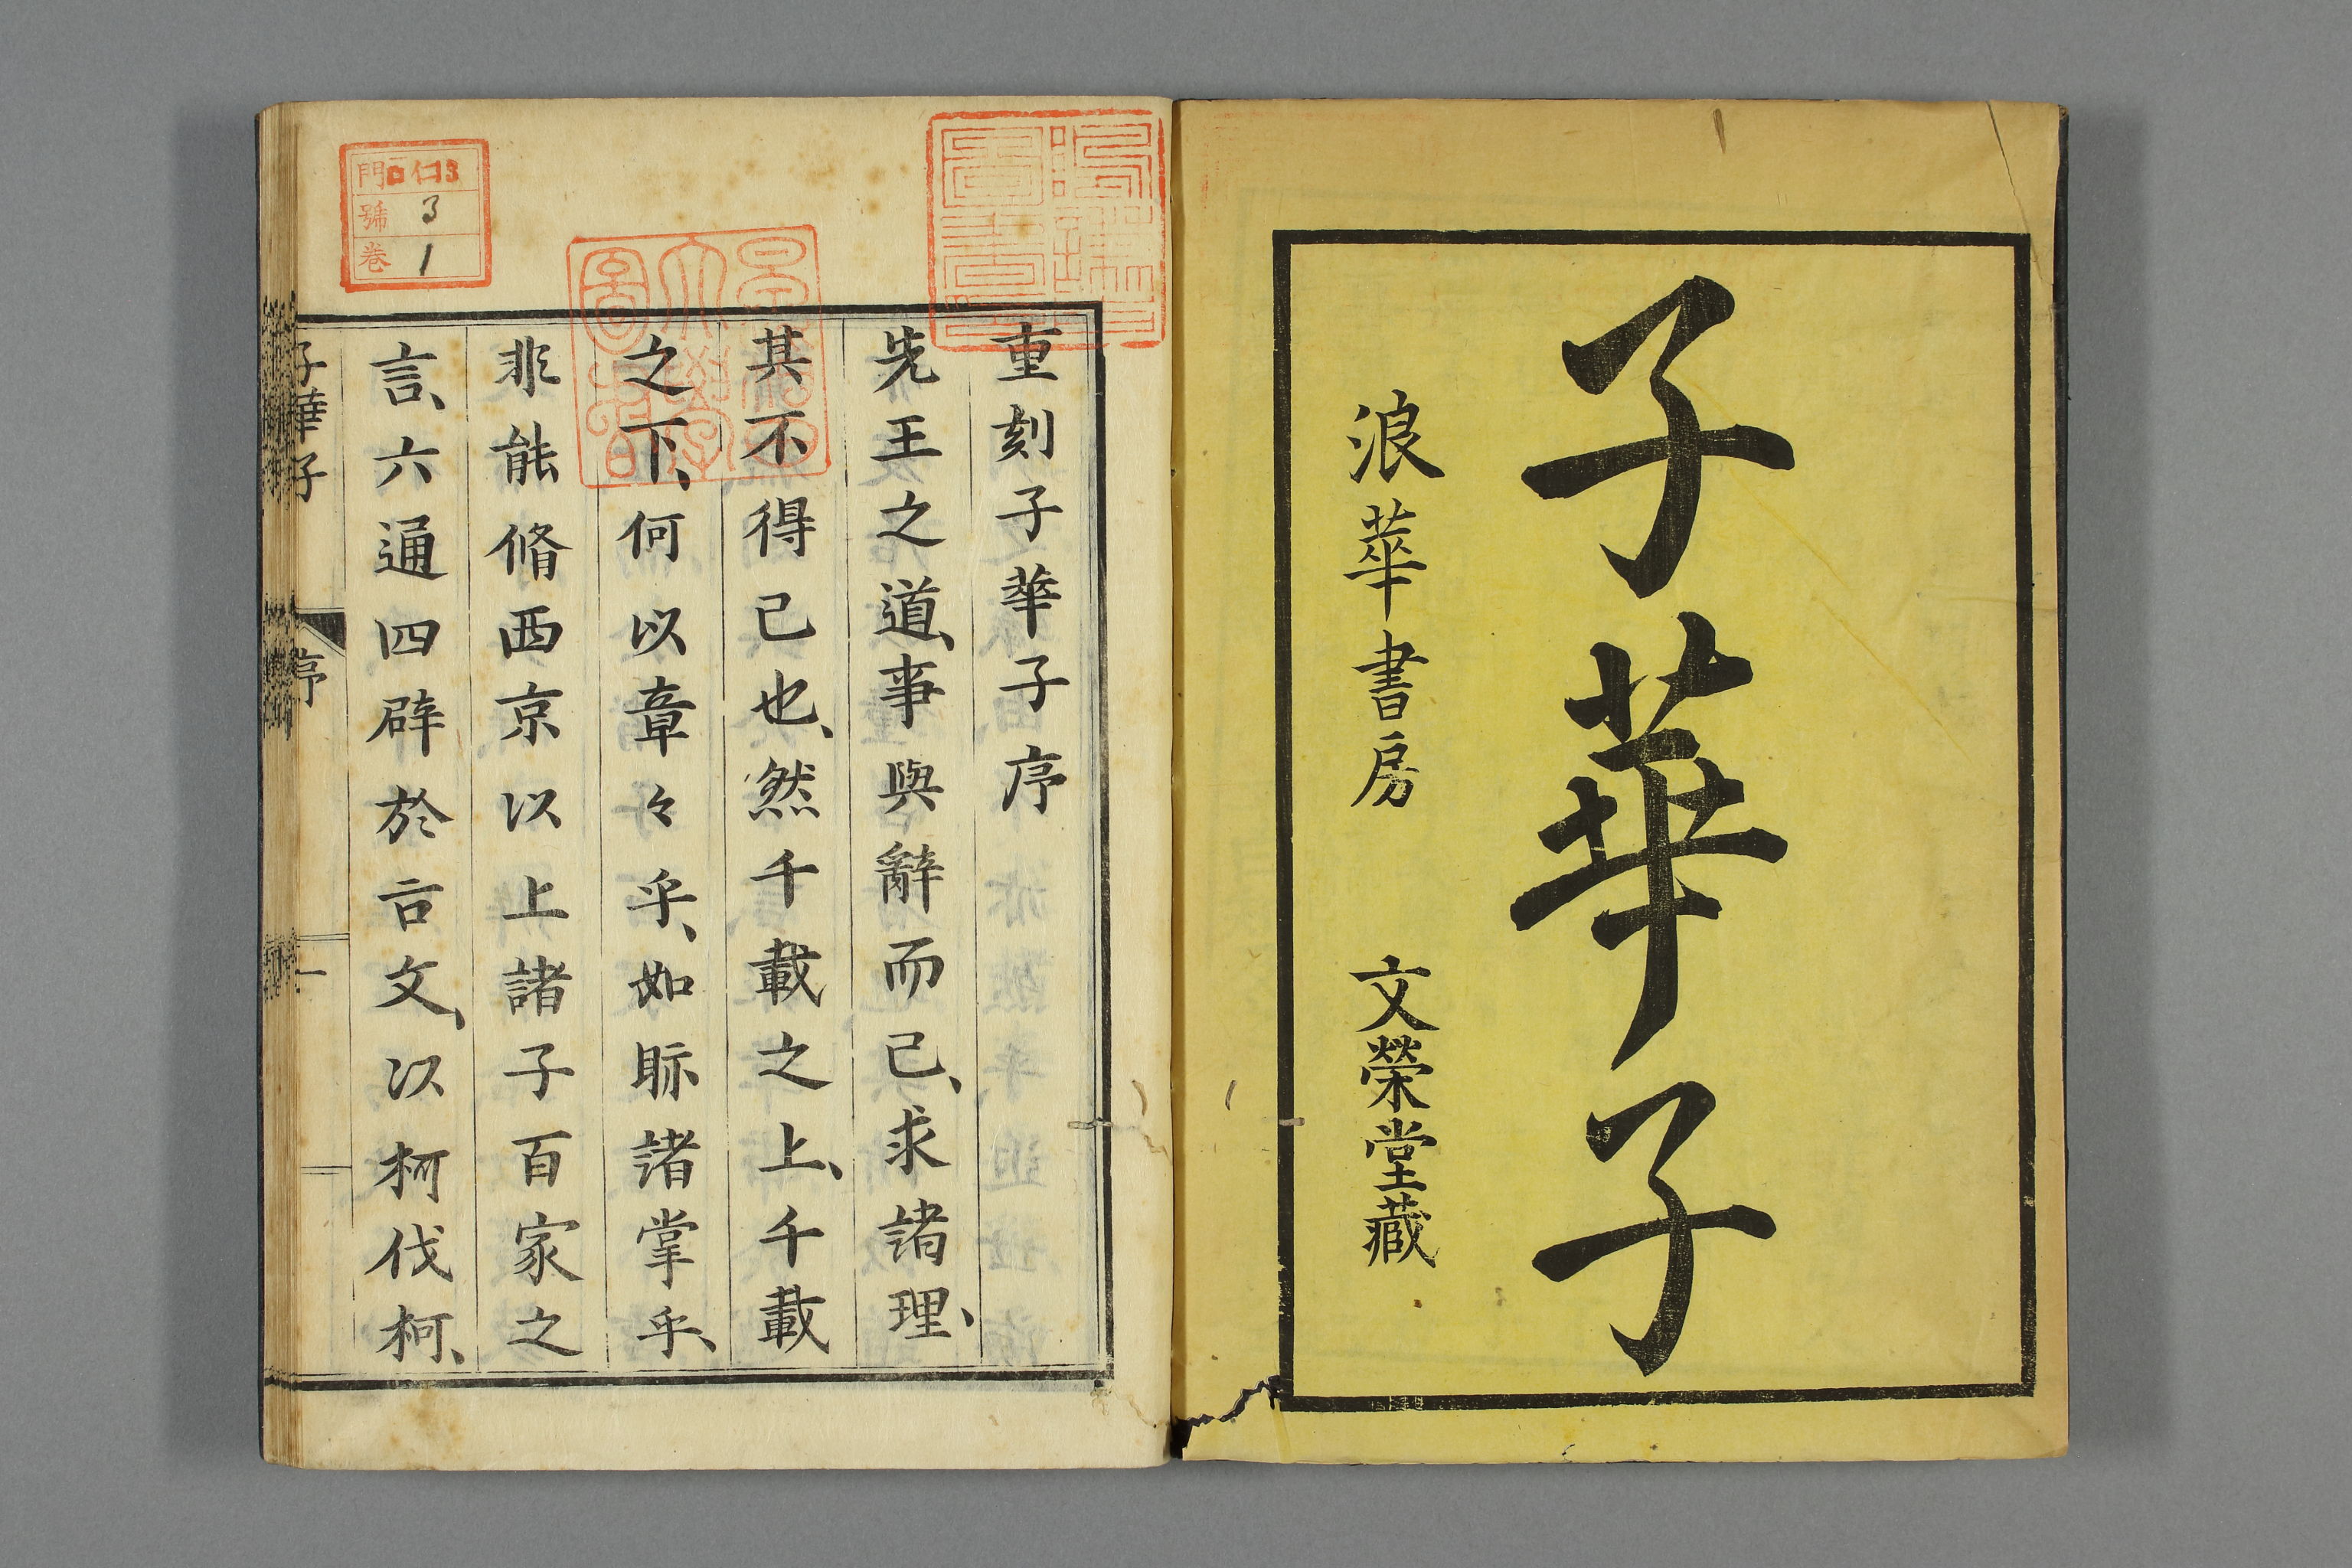 子華子
浪華書房 文榮堂藏
重刻子華子序
先王之道、事與辭而已、求諸理、
其不得已也、然千載之上、千載
之下、何以章々乎、如眎諸掌乎、
非能脩西京以上諸子百家之
言、六通四辟於古文、以柯伐柯、
子華子 序 一
門 仁13
號 3
卷 1